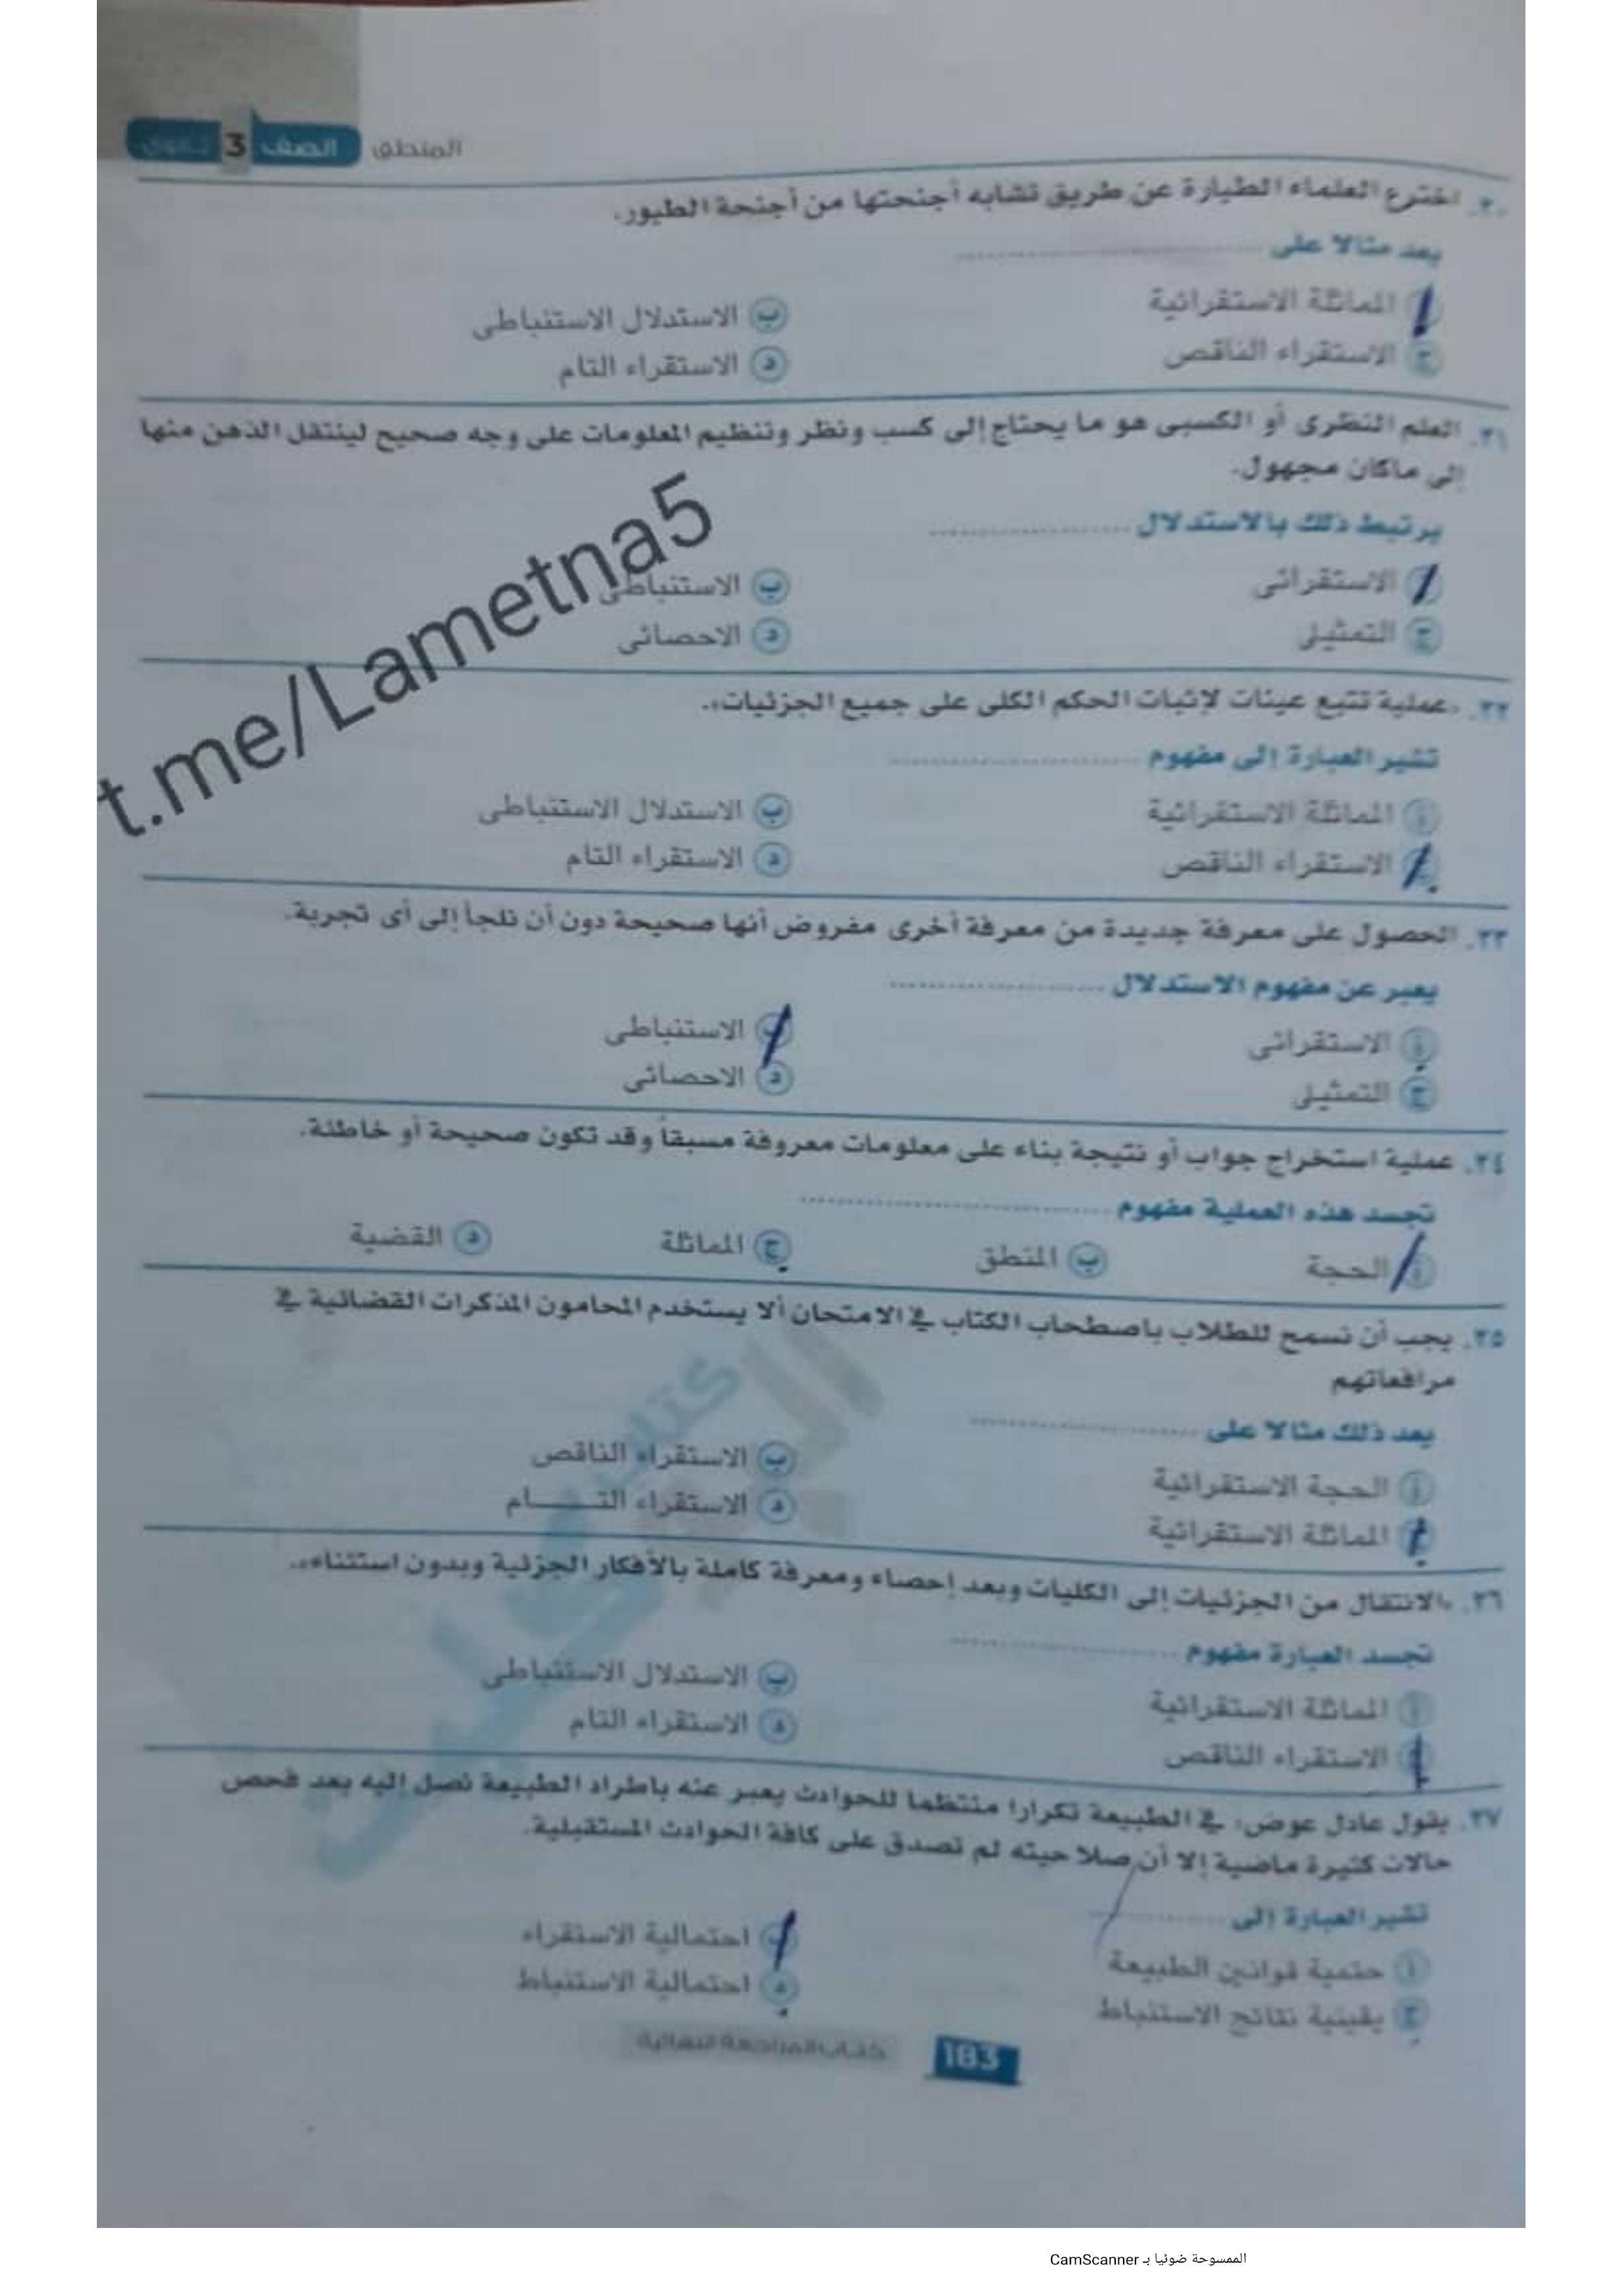 المنطق الصف 3 ثانوى
٢٠. اخترع العلماء الطيارة عن طريق تشابه أجنحتها من أجنحة الطيور.
يعد مثالا على
أ المماثلة الاستقرائية
ب الاستدلال الاستنباطى
ج الاستقراء الناقص
د الاستقراء التام
٢١. العلم النظرى أو الكسبى هو ما يحتاج إلى كسب ونظر وتنظيم المعلومات على وجه صحيح لينتقل الذهن منها
إلى ماكان مجهول.
يرتبط ذلك بالاستدلال
أ الاستقرائى
ب الاستنباطى
ج التمثيلى
د الاحصائى
t.me/Lametna5
٢٢. «عملية تتبع عينات لإثبات الحكم الكلى على جميع الجزئيات».
تشير العبارة إلى مفهوم
أ المماثلة الاستقرائية
ب الاستدلال الاستنباطى
ج الاستقراء الناقص
د الاستقراء التام
٢٣. الحصول على معرفة جديدة من معرفة أخرى مفروض أنها صحيحة دون أن نلجأ إلى أى تجربة.
يعبر عن مفهوم الاستدلال
أ الاستقرائى
ب الاستنباطى
ج التمثيلى
د الاحصائى
٢٤. عملية استخراج جواب أو نتيجة بناء على معلومات معروفة مسبقاً وقد تكون صحيحة أو خاطئة.
تجسد هذه العملية مفهوم
أ الحجة
ب المنطق
ج المماثلة
د القضية
٢٥. يجب أن نسمح للطلاب باصطحاب الكتاب في الامتحان ألا يستخدم المحامون المذكرات القضائية في
مرافعاتهم
يعد ذلك مثالا على
أ الحجة الاستقرائية
ب الاستقراء الناقص
ج المماثلة الاستقرائية
د الاستقراء التـــــام
٢٦. «الانتقال من الجزئيات إلى الكليات وبعد إحصاء ومعرفة كاملة بالأفكار الجزئية وبدون استثناء».
تجسد العبارة مفهوم
أ المماثلة الاستقرائية
ب الاستدلال الاستنباطى
ج الاستقراء الناقص
د الاستقراء التام
٢٧. يقول عادل عوض: في الطبيعة تكرارا منتظما للحوادث يعبر عنه باطراد الطبيعة نصل إليه بعد فحص
حالات كثيرة ماضية إلا أن صلاحيته لم تصدق على كافة الحوادث المستقبلية.
تشير العبارة إلى
أ حتمية قوانين الطبيعة
ب احتمالية الاستقراء
ج يقينية نتائج الاستنباط
د احتمالية الاستنباط
183 كتاب المراجعة النهائية
الممسوحة ضوئيا بـ CamScanner